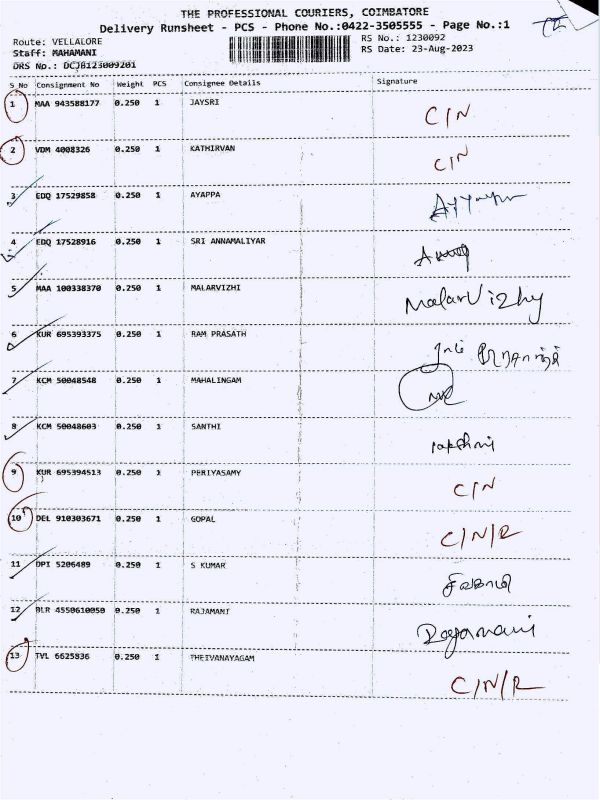 THE PROFESSIONAL COURIERS, COIMBATORE
Delivery Runsheet - PCS - Phone No.:0422-3505555 - Page No.:1
Route: VELLALORE
RS No.: 1230092
Staff: MAHAMANI
RS Date: 23-Aug-2023
DRS No.: DCJB123009201
S_No Consignment No Weight PCS Consignee Details Signature
1 MAA 943588177 0.250 1 JAYSRI C/N
2 VDM 4008326 0.250 1 KATHIRVAN C/N
3 EDQ 17529858 0.250 1 AYAPPA
4 EDQ 17528916 0.250 1 SRI ANNAMALIYAR
5 MAA 100338370 0.250 1 MALARVIZHI MalarVizhy
6 KUR 695393375 0.250 1 RAM PRASATH
7 KCM 50048548 0.250 1 MAHALINGAM
8 KCM 50048603 0.250 1 SANTHI
9 KUR 695394513 0.250 1 PERIYASAMY C/N
10 DEL 910303671 0.250 1 GOPAL C/N/R
11 DPI 5206489 0.250 1 S KUMAR
12 BLR 4550610050 0.250 1 RAJAMANI Rajamani
13 TVL 6625836 0.250 1 THEIVANAYAGAM C/N/R